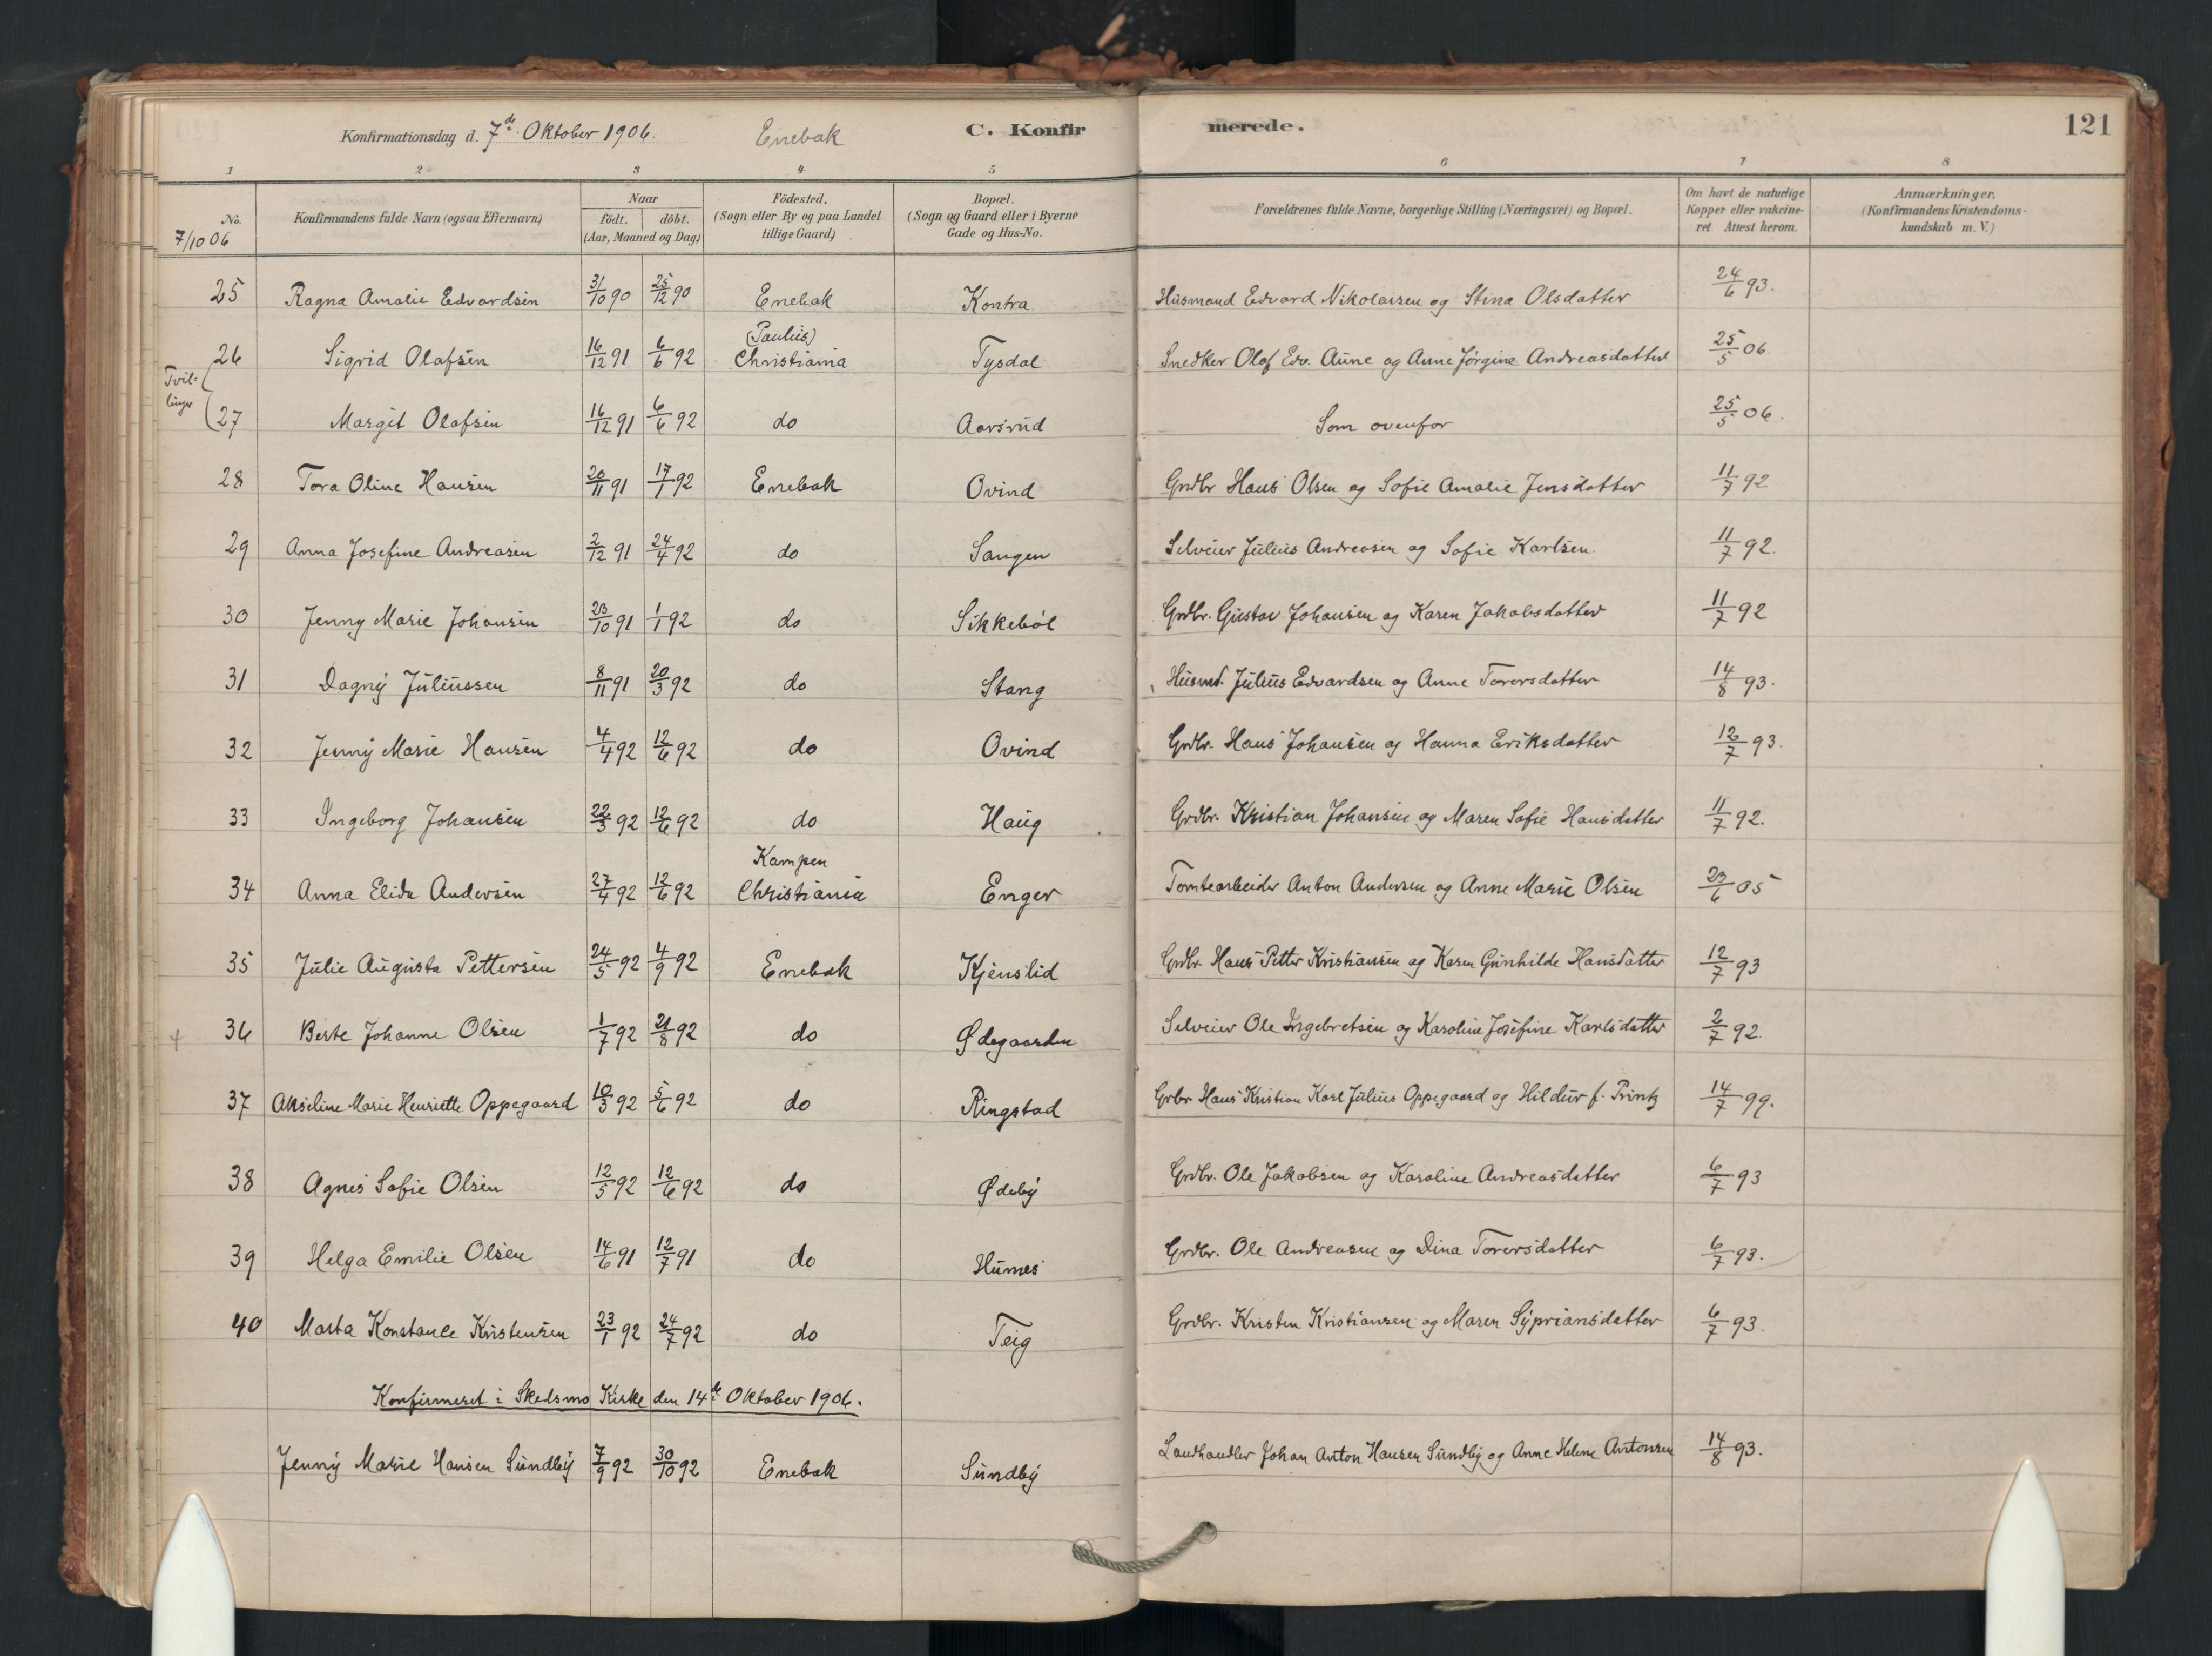 Konfirmationsdag d. 7de Oktober 1906. Enebak C. Konfirmerede. 121
1 2 3 4 5 6 7 8
No. Konfirmandens fulde Navn (ogsaa Efternavn) Naar födt. döbt. (Aar, Maaned og Dag) Födested. (Sogn eller By og paa Landet tillige Gaard) Bopæl. (Sogn og Gaard eller i Byerne Gade og Hus-No. Forældrenes fulde Navne, borgerlige Stilling (Næringsvei) og Bopæl. Om havt de naturlige Kopper eller vakcineret Attest herom. Anmærkninger. (Konfirmandens Kristendomskundskab m. V.)
7/10 06
25 Ragna Amalie Edvardsen 31/10 90 25/12 90 Enebak Kontra Husmand Edvard Nikolaisen og Stina Olsdatter 24/6 93.
26 Sigrid Olafsen 16/12 91 6/6 92 (Paulus) Christiania Tysdal Snedker Olaf Edv. Aune og Anne Jørgine Andreasdatter 25/5 06.
Tvillinger
27 Margit Olafsen 16/12 91 6/6 92 do Aarsrud Som ovenfor 25/5 06.
28 Tora Oline Hansen 20/11 91 17/1 92 Enebak Ovind Grdbr Hans Olsen og Sofie Amalie Jensdatter 11/7 92
29 Anna Josefine Andreasen 2/12 91 24/4 92 do Sangen Selveier Julius Andreasen og Sofie Karlsen. 11/7 92.
30 Jenny Marie Johansen 23/10 91 1/1 92 do Sikkeböl Grdbr. Gustav Johansen og Karen Jakobsdatter 11/7 92
31 Dagny Juliussen 8/11 91 20/3 92 do Stang Husmd. Julius Edvardsen og Anne Torersdatter 14/8 93.
32 Jenny Marie Hansen 4/4 92 12/6 92 do Ovind Grdbr. Hans Johansen og Hanna Eriksdatter 12/7 93.
33 Ingeborg Johansen 22/3 92 12/6 92 do Haug Grdbr. Kristian Johansen og Maren Sofie Hansdatter 11/7 92.
34 Anna Elida Andersen 27/4 92 12/6 92 Kampen Christiania Enger Tomtearbeider Anton Andersen og Anne Marie Olsen 23/6 05
35 Julie Augusta Pettersen 24/5 92 4/9 92 Enebak Kjenslid Grdbr. Hans Petter Kristiansen og Karen Gunhilde Hansdatter 12/7 93
36 Berte Johanne Olsen 1/7 92 21/8 92 do Ødegaarden Selveier Ole Ingebretsen og Karoline Josefine Karlsdatter 2/7 92.
37 Akseline Marie Henriette Oppegaard 10/3 92 5/6 92 do Ringstad Grbr Hans Kristian Karl Julius Oppegaard og Hildur f. Printz 14/7 99.
38 Agnes Sofie Olsen 12/5 92 12/6 92 do Ødeby Grdbr. Ole Jakobsen og Karoline Andreasdatter 6/7 93
39 Helga Emilie Olsen 14/6 91 12/7 91 do Humes Grdbr. Ole Andreasen og Dina Torersdatter 6/7 93.
40 Marta Konstance Kristensen 23/1 92 24/7 92 do Teig Grdbr. Kristen Kristiansen og Maren Sypriansdatter 6/7 93.
Konfirmeret i Skedsmo Kirke den 14de Oktober 1906.
Jenny Marie Hansen Sundby 7/9 92 30/10 92 Enebak Sundby Landhandler Johan Anton Hansen Sundby og Anne Helene Antonsen 14/8 93.